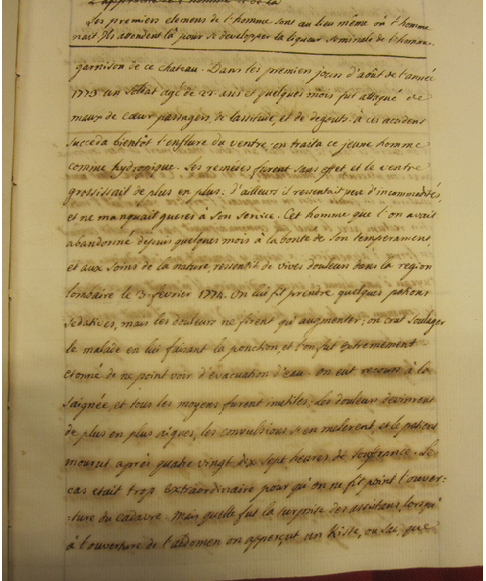 Les premiers elemens de l'homme sont au lieu même où l'homme
nait. Ils attendent là pour se developper la liqueur seminale de l'homme.
garnison de ce chateau. Dans les premiers jours d'août de l'année
1773 un soldat agé de 22 ans et quelques mois fut attaqué de
maux de cœur passagers de lassitude, et de degouts. à ces accidens
succeda bientôt l'enflure du ventre, on traita ce jeune homme
comme hydropique. Les remedes furent sans effet et le ventre
grossissait de plus en plus. d'ailleurs il ressentait peu d'incommodités,
et ne manquait gueres à son service. Cet homme que l'on avait
abandonné depuis quelques mois à la bonté de son temperament
et aux soins de la nature, ressentit de vives douleurs dans la region
lombaire le 3 fevrier 1774. on lui fit prendre quelques potions
sedatives, mais les douleurs ne firent qu'augmenter; on crut soulager
le malade en lui faisant la ponction, et l'on fut extremement
etonné de ne point voir d'évacuation d'eau. on eut recours à la
saignée, et tous les moyens furent inutiles. les douleurs devinrent
de plus en plus aigues, les convulsions s'en melerent, et le patient
mourut après quatre vingt dix sept heures de souffrance. Le
cas etait trop extraordinaire pour qu'on ne fit point l'ouver=
=ture du cadavre. Mais quelle fut la surprise des assistans, lorsqu'
à l'ouverture de l'abdomen on apperçut un Kiste, ou sac que